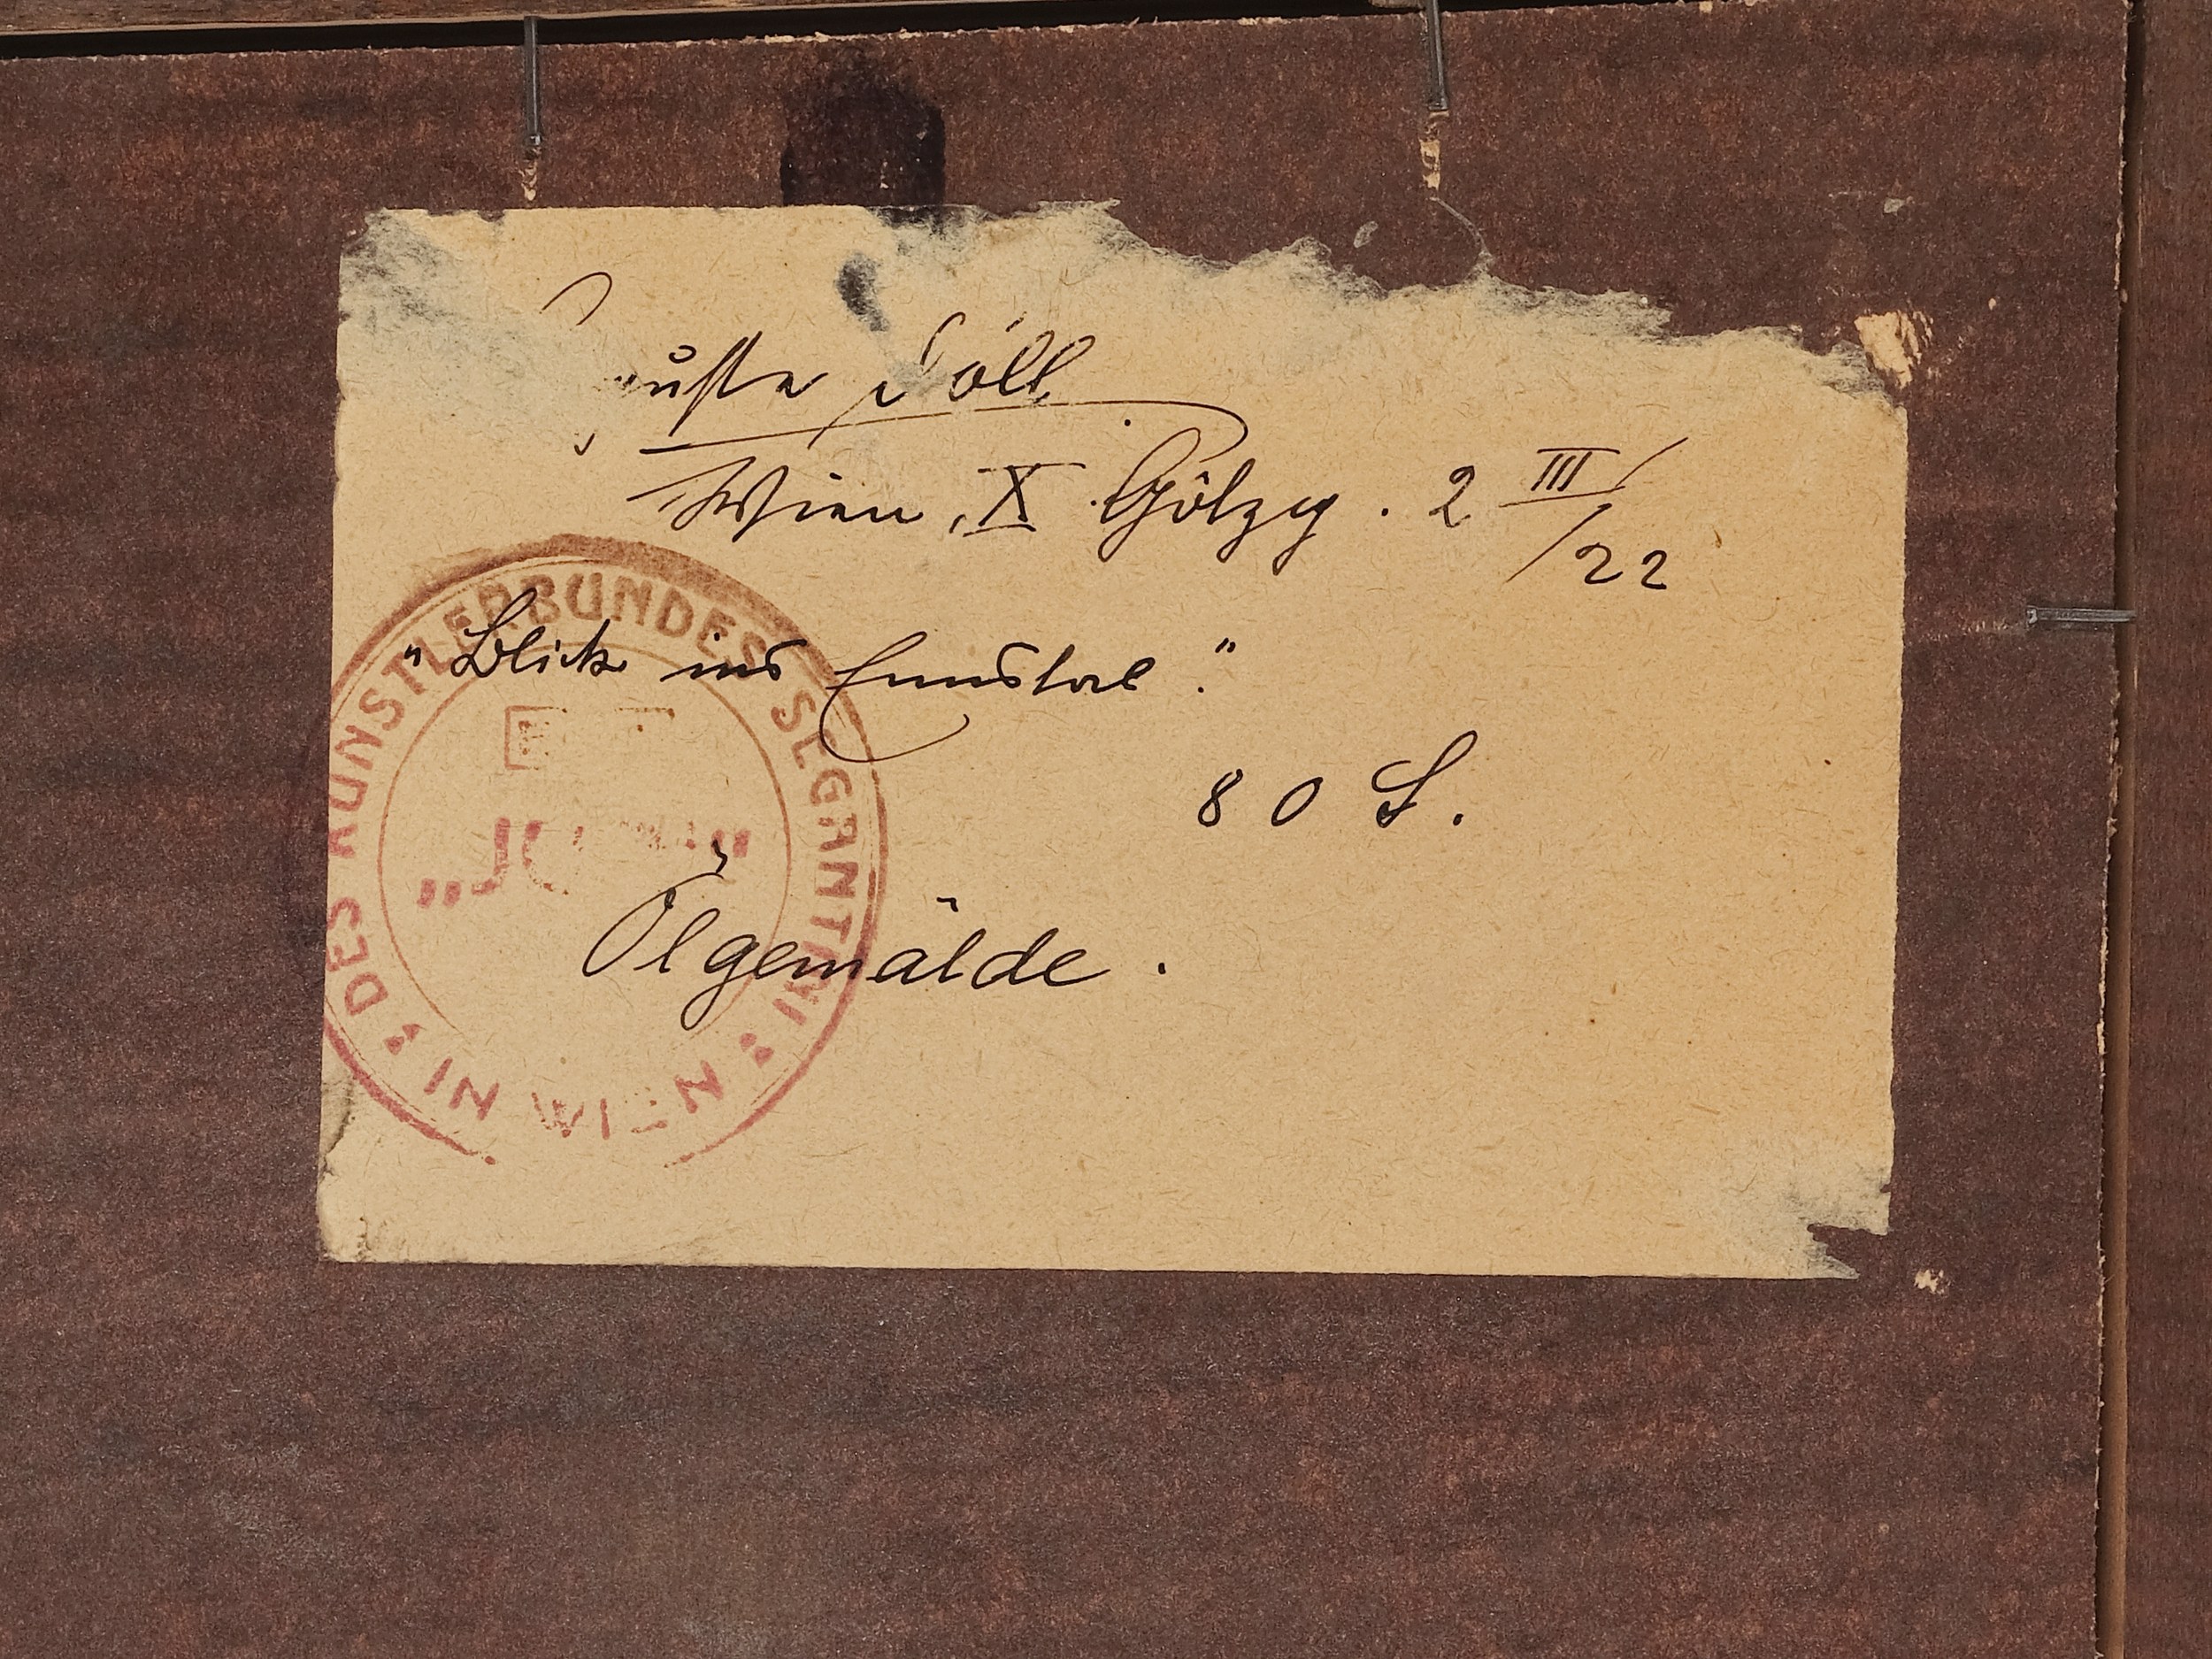 Wien, X Gölzg. 2 III/
/22
"Blick ins Ennstal".
80 S.
Ölgemälde.
DES KÜNSTLERBUNDES SEGANTINI
IN WIEN